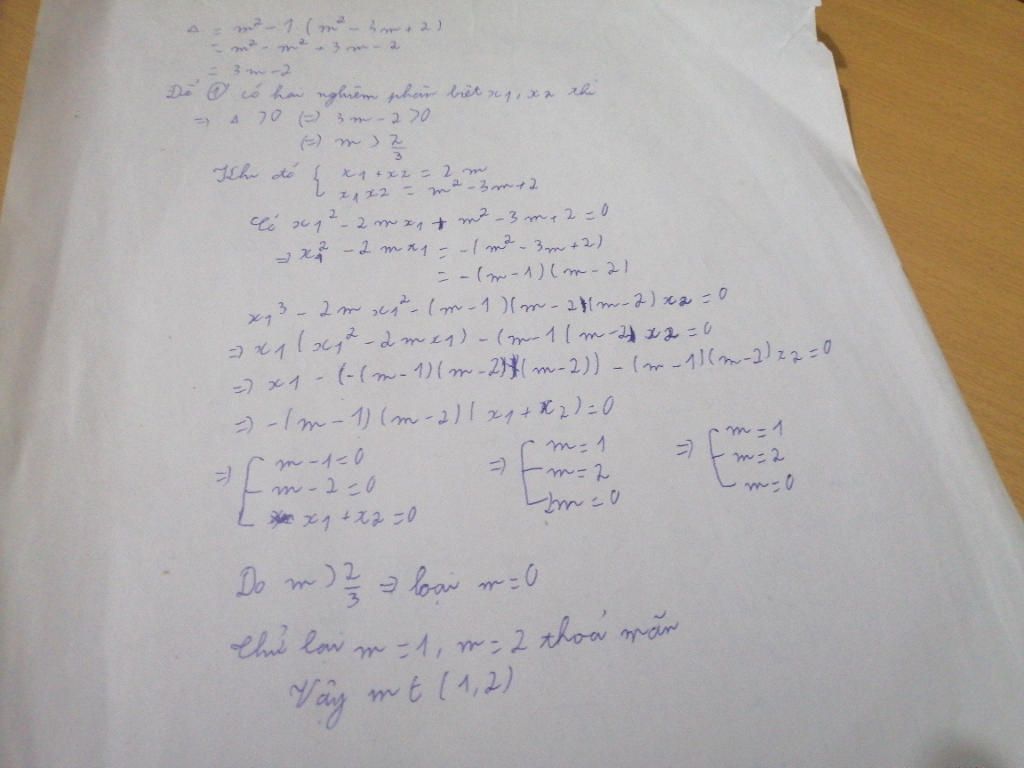 Δ = m² - 1 (m² - 3m + 2)
= m² - m² + 3m - 2
= 3m - 2
Để ① có hai nghiệm phân biệt x1, x2 thì
=> Δ > 0 (=) 3m - 2 > 0
(=) m > 2/3
Khi đó { x1 + x2 = 2m
x1 x2 = m² - 3m + 2
Có x1² - 2mx1 + m² - 3m + 2 = 0
=> x1² - 2mx1 = -(m² - 3m + 2)
= -(m - 1)(m - 2)
x1³ - 2mx1² - (m - 1)(m - 2)(m - 2)x2 = 0
=> x1(x1² - 2mx1) - (m - 1(m - 2)x2 = 0
=> x1 - (-(m - 1)(m - 2)(m - 2)) - (m - 1)(m - 2)x2 = 0
=> -(m - 1)(m - 2)(x1 + x2) = 0
=> [ m - 1 = 0 => [ m = 1 => [ m = 1
m - 2 = 0 m = 2 m = 2
x1 + x2 = 0 2m = 0 m = 0
Do m > 2/3 => loại m = 0
Thử lại m = 1, m = 2 thoả mãn
Vậy m t (1, 2)